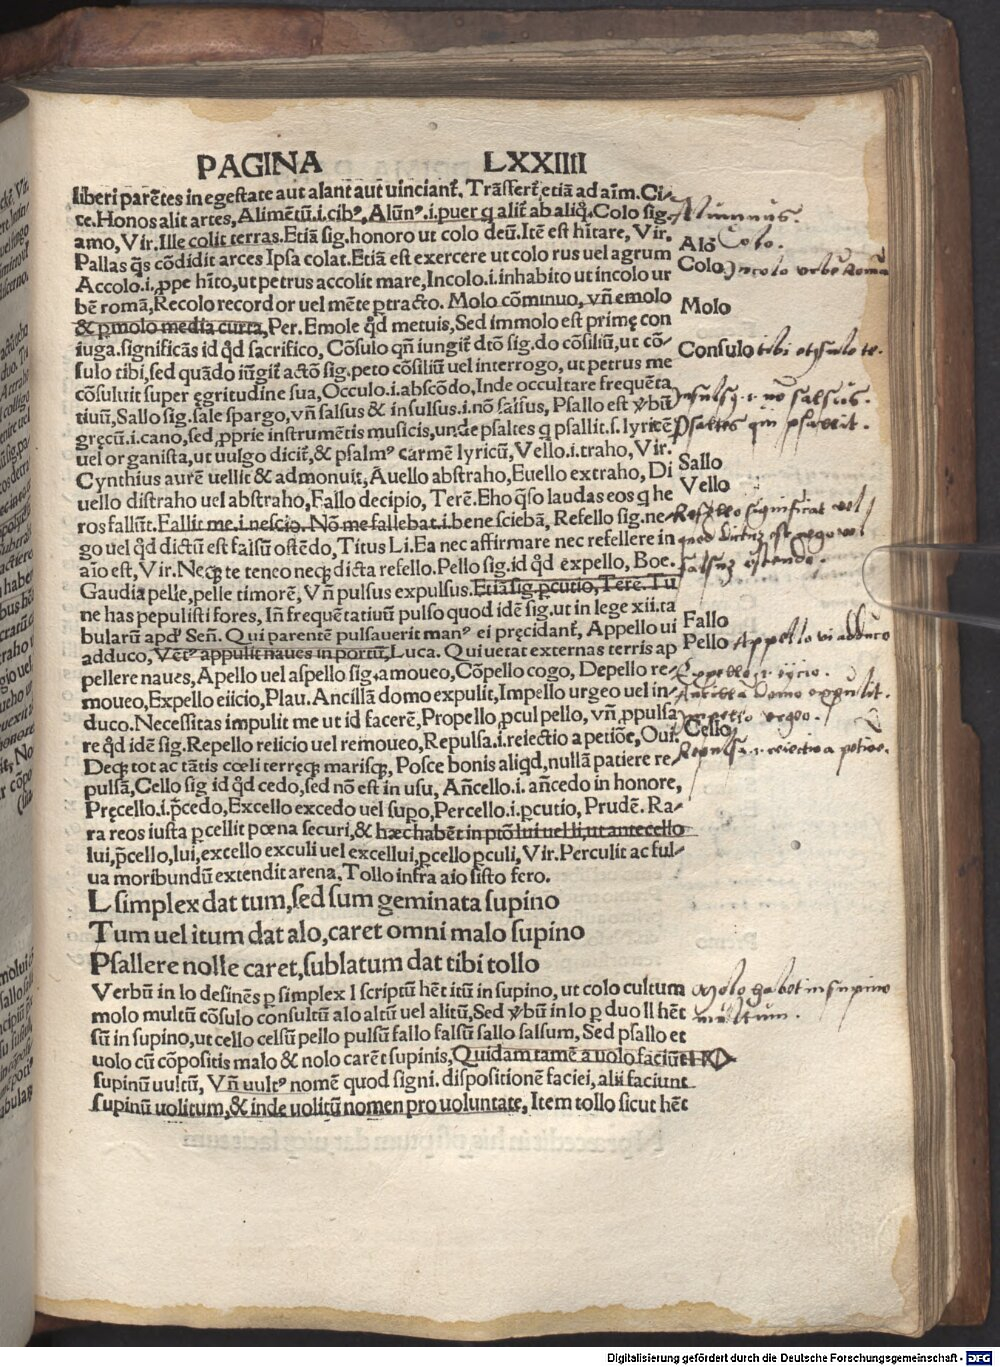 PAGINA LXXIIII
liberi parẽtes in egestate aut alant aut uinciant᷑. Trãsfert᷑ etiã ad aĩm. Ci⸗
te. Honos alit artes, Alimẽtũ .i. cibꝰ, Alũnꝰ .i. puer q alit᷑ ab aliq̃. Colo sig.
amo, Vir. Ille colit terras. Etiã sig. honoro ut colo deũ. Itẽ est hĩtare, Vir.
Pallas q̃s cõdidit arces Ipsa colat. Etiã est exercere ut colo rus uel agrum
Accolo .i. ꝓpe hĩto, ut petrus accolit mare, Incolo .i. inhabito ut incolo ur
bẽ romã, Recolo recordor uel mẽte ptracto. Molo cõminuo, vñ emolo
& ꝑmolo media curta, Per. Emole q̃d metuis, Sed immolo est primę con
iuga. significãs id q̃d sacrifico, Cõsulo qñ iungit᷑ dtõ sig. do cõsiliũ, ut cõ⸗
sulo tibi, sed quãdo iũgit᷑ actõ sig. peto cõsiliũ uel interrogo, ut petrus me
cõsuluit super ęgritudine sua, Occulo .i. abscõdo, Inde occultare frequẽta
tiuũ, Sallo sig. sale spargo, vñ salsus & insulsus .i. nõ salsus, Psallo est ꝟbũ
gręcũ .i. cano, sed ꝓprie instrumẽtis musicis, unde psaltes q psallit .s. lyricẽ
uel organista, ut uulgo dicit᷑, & psalmꝰ carmẽ lyricũ, Vello .i. traho, Vir.
Cynthius aurẽ uellit & admonuit, Auello abstraho, Euello extraho, Di
uello distraho uel abstraho, Fallo decipio, Terẽ. Eho q̃so laudas eos q he
ros fallũt. Fallit me .i. nescio. Nõ me fallebat .i. bene sciebã, Refello sig. ne⸗
go uel q̃d dictũ est falsũ ostẽdo, Titus Li. Ea nec affirmare nec refellere in
aĩo est, Vir. Neqꝫ te teneo neqꝫ dicta refello. Pello sig. id q̃d expello, Boe.
Gaudia pelle, pelle timorẽ, Vñ pulsus expulsus. Etiã sig. ꝑcutio, Terẽ. Tu
ne has pepulisti fores, Iñ frequẽtatiuũ pulso quod idẽ sig. ut in lege xii. ta
bularũ apd' Señ. Qui parentẽ pulsauerit manꝰ ei pręcidant᷑, Appello ui
adduco, Vẽtꝰ appulit naues in portũ, Luca. Qui uetat externas terris ap
pellere naues, Apello uel aspello sig. amoueo, Cõpello cogo, Depello re⸗
moueo, Expello eiicio, Plau. Ancillã domo expulit, Impello urgeo uel in⸗
duco. Necessitas impulit me ut id facerẽ, Propello, pcul pello, vñ ꝓpulsa
re q̃d idẽ sig. Repello reiicio uel remoueo, Repulsa .i. reiectio a petiõe, Oui.
Deqꝫ tot ac tãtis cœli terręqꝫ marisqꝫ, Posce bonis aliq̃d, nullã patiere re
pulsã, Cello sig id q̃d cedo, sed nõ est in usu, Añcello .i. añcedo in honore,
Pręcello .i. p̃cedo, Excello excedo uel supo, Percello .i. ꝑcutio, Prudẽ. Ra⸗
ra reos iusta ꝑcellit pœna securi, & hæc habẽt in ptõ lui uel li, ut antecello
lui, p̃cello, lui, excello exculi uel excellui, ꝑcello ꝑculi, Vir. Perculit ac ful⸗
ua moribundũ extendit arena, Tollo infra aio sisto fero.
L simplex dat tum, sed sum geminata supino
Tum uel itum dat alo, caret omni malo supino
Psallere nolle caret, sublatum dat tibi tollo
Verbũ in lo desinẽs ꝑ simplex l scriptũ hẽt itũ in supino, ut colo cultum
molo multũ cõsulo consultũ alo altũ uel alitũ, Sed ꝟbũ in lo ꝑ duo ll hẽt
sũ in supino, ut cello celsũ pello pulsũ fallo falsũ sallo salsum, Sed psallo et
uolo cũ cõpositis malo & nolo carẽt supinis, Quidam tamẽ a uolo faciũt
supinũ uultũ, Vñ uultꝰ nomẽ quod signi. dispositionẽ faciei, alii faciunt
supinũ uolitum, & inde uolitũ nomen pro uoluntate, Item tollo sicut hẽt
Alumnus.
Alo Colo.
Colo Incolo urbẽ Romã
Molo
Consulo tibi et consulo te.
Insulsus .i. nõ salsus.
Psaltes qui psallit.
Sallo
Vello
Refello significat vel
quod dictũ est nego vel
falsuꝫ ostendo.
Fallo
Pello Appello vi adduco
Expello .i. eijcio.
Ancillã domo expulit.
Impello urgeo.
Cello
Repulsa .i. reiectio a petiõe.
Molo habet in supino
multum.
Digitalisierung gefördert durch die Deutsche Forschungsgemeinschaft - DFG